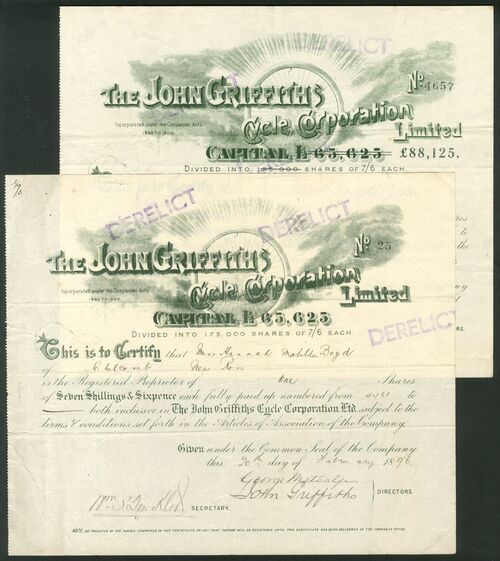 DERELICT
No 4657
THE JOHN GRIFFITHS
Incorporated under the Companies Acts
Cycle Corporation
Limited
CAPITAL £65,625 £88,125.
DIVIDED INTO 175,000 SHARES OF 7/6 EACH.
DERELICT
DERELICT
No 25
THE JOHN GRIFFITHS
Incorporated under the Companies Acts
Cycle Corporation
Limited
CAPITAL £65,625
DIVIDED INTO 175,000 SHARES OF 7/6 EACH.
DERELICT
This is to Certify that Miss Hannah Matilda Boyd
of New Ross
is the Registered Proprietor of One Shares
of Seven Shillings & Sixpence each fully paid up numbered from
both inclusive in The John Griffiths Cycle Corporation Ltd. subject to the
terms & conditions set forth in the Articles of Association of the Company.
Given under the Common Seal of the Company
this 20th day of February 1896
George Metcalfe
John Griffiths
DIRECTORS.
SECRETARY.
NOTE. NO TRANSFER OF THE SHARES COMPRISED IN THIS CERTIFICATE OR ANY PART THEREOF WILL BE REGISTERED UNTIL THIS CERTIFICATE HAS BEEN DELIVERED AT THE COMPANY'S OFFICE.